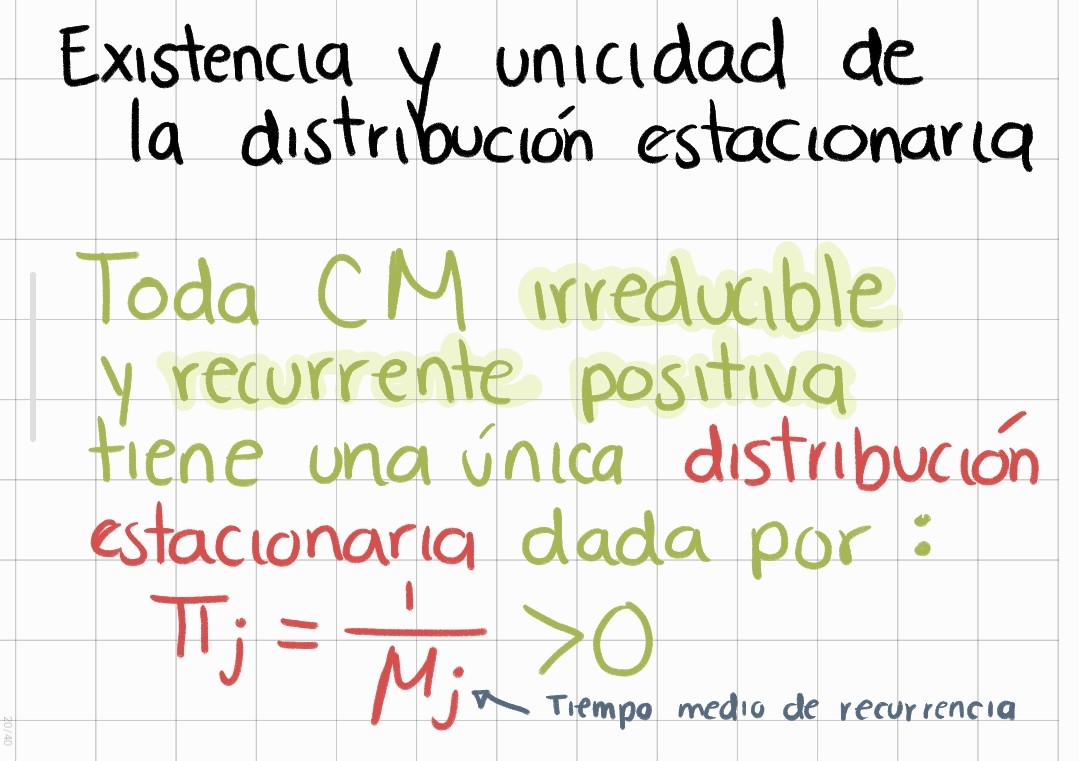 Existencia y unicidad de
la distribución estacionaria
Toda CM irreducible
y recurrente positiva
tiene una única distribución
estacionaria dada por :
πj = 1/μj >0
Tiempo medio de recurrencia
20/40